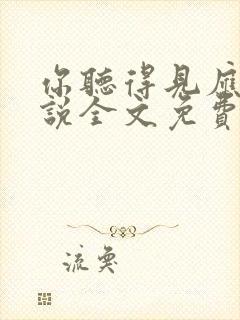 你聽得見應
說全文免費
流奐